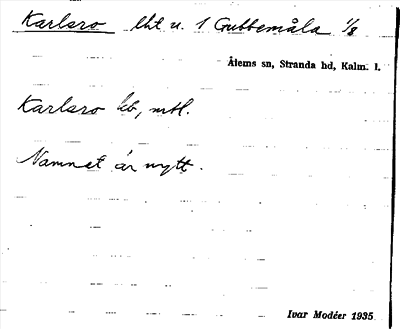 Karlsro lht u. 1 Gubbemåla 1/8
Ålems sn, Stranda hd, Kalm. l.
Karlsro lb, mtl.
Namnet är nytt.
Ivar Modéer 1935